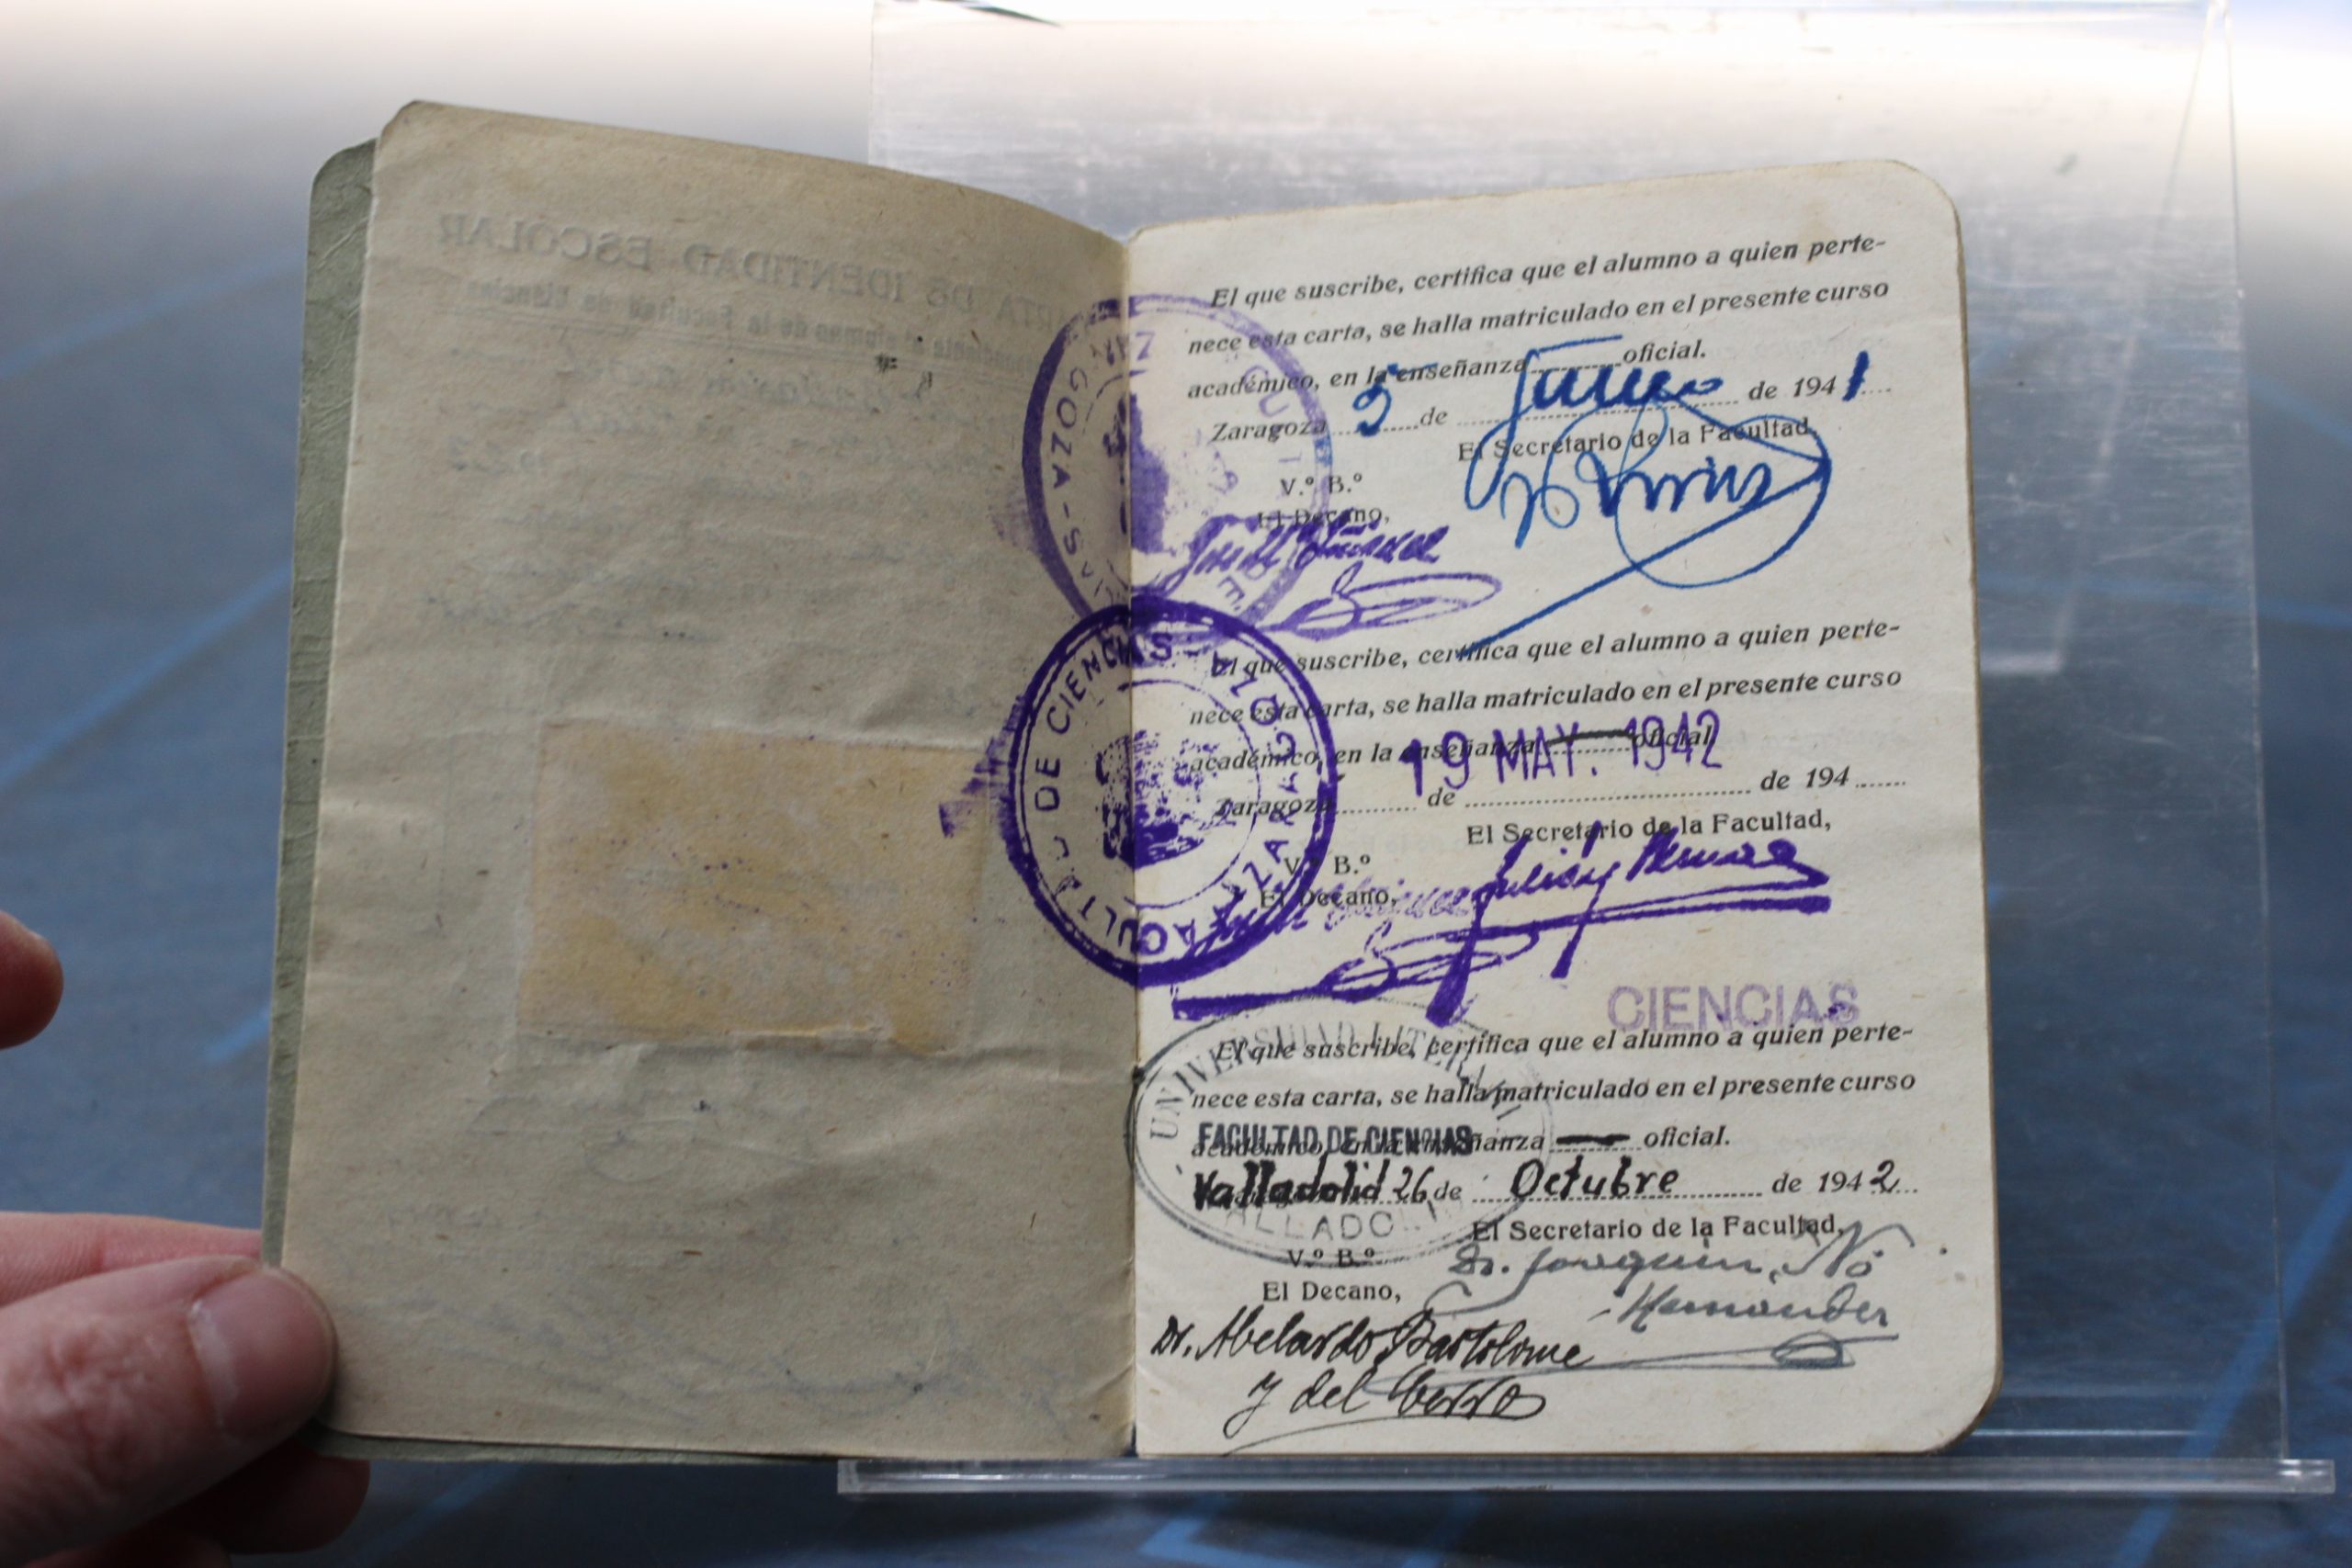 CARTA DE IDENTIDAD ESCOLAR
alumno de la Facultad de Ciencias
El que suscribe, certifica que el alumno a quien perte-
nece esta carta, se halla matriculado en el presente curso
académico, en la enseñanza oficial.
Zaragoza 5 de de 1941
El Secretario de la Facultad,
V.º B.º
El Decano,
ZARAGOZA
El que suscribe, certifica que el alumno a quien perte-
nece esta carta, se halla matriculado en el presente curso
académico, en la enseñanza oficial.
19 MAY. 1942
Zaragoza de de 194
El Secretario de la Facultad,
V.º B.º
El Decano,
FACULTAD DE CIENCIAS - ZARAGOZA
CIENCIAS
El que suscribe, certifica que el alumno a quien perte-
nece esta carta, se halla matriculado en el presente curso
académico, en la enseñanza oficial.
UNIVERSIDAD LITERARIA
FACULTAD DE CIENCIAS
VALLADOLID
Valladolid 26 de Octubre de 1942
El Secretario de la Facultad,
Dr. Joaquin Nó
Hernandez
V.º B.º
El Decano,
Dr. Abelardo Bartolome
y del Cerro